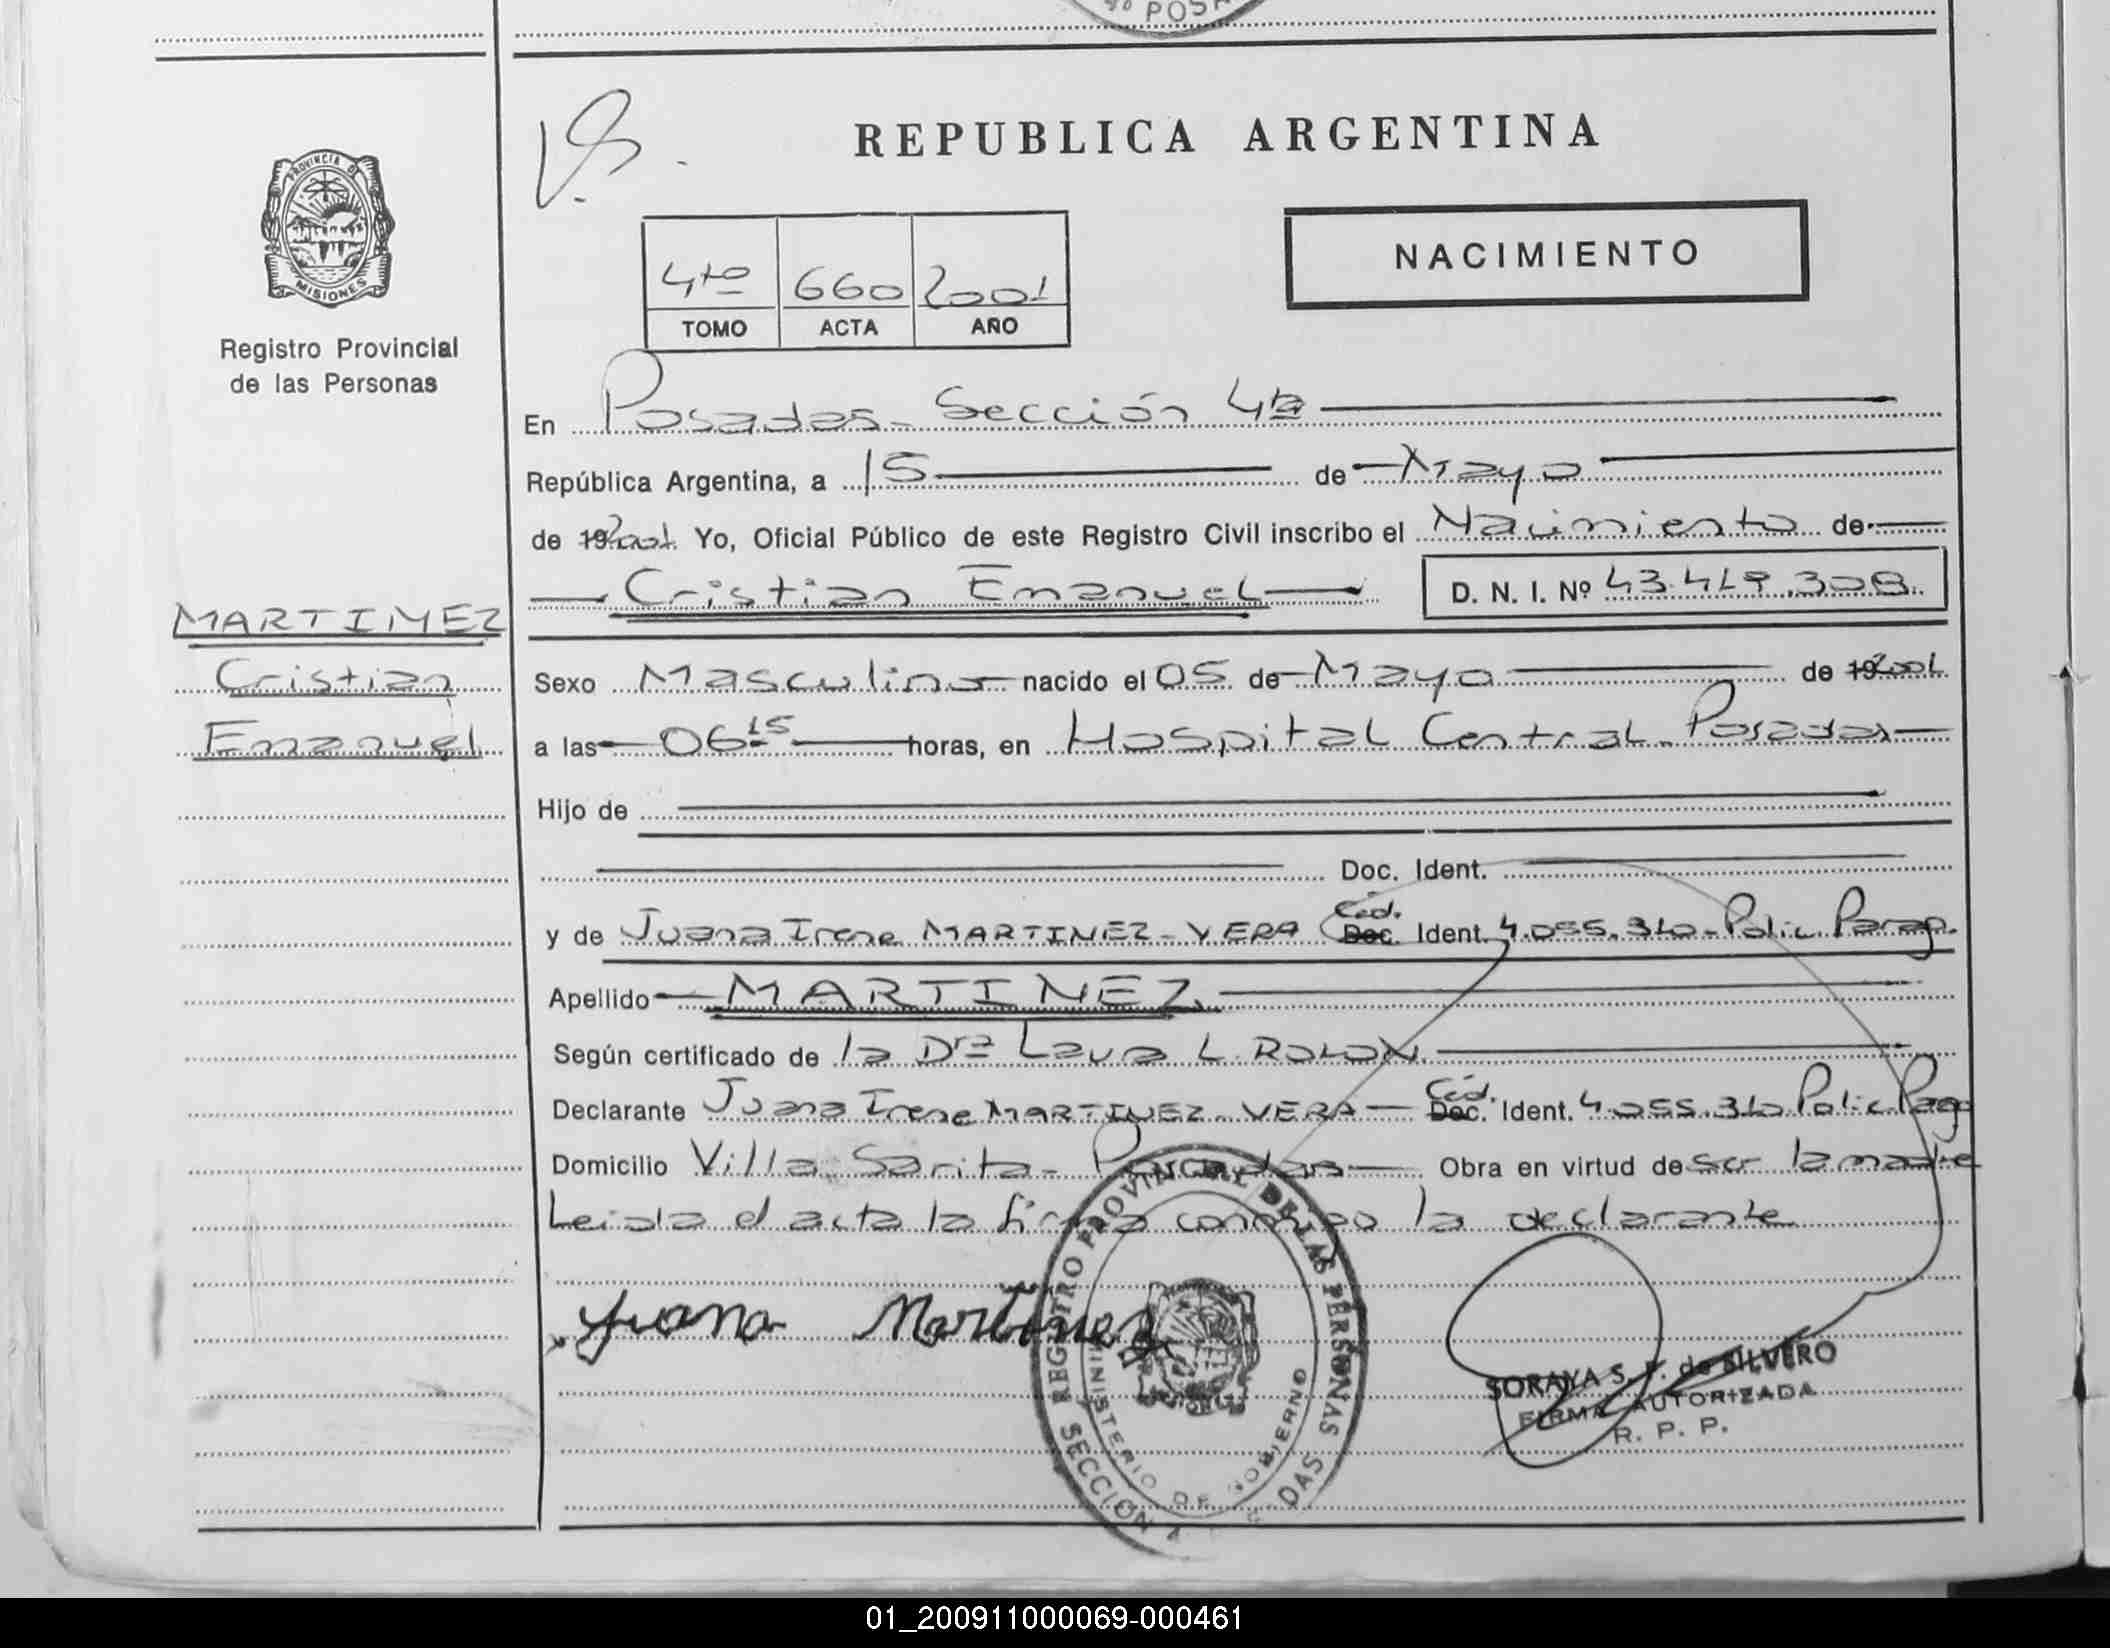 POSA
REPUBLICA ARGENTINA
PROVINCIA DE MISIONES
NACIMIENTO
4to 660 2001
TOMO ACTA AÑO
Registro Provincial
de las Personas
En Posadas - Sección 4ta
República Argentina, a 15 de Mayo
de 19 2001. Yo, Oficial Público de este Registro Civil inscribo el Nacimiento de
Cristian Emanuel D. N. I. Nº 43.419.308.
MARTINEZ
Cristian
Emanuel
Sexo Masculino nacido el 05 de Mayo de 19 2001
a las 06 15 horas, en Hospital Central - Posadas
Hijo de
Doc. Ident.
y de Juana Irene MARTINEZ - VERA Céd. Doc. Ident. 4.055.310 - Polic. Parag.
Apellido MARTINEZ
Según certificado de la Dra Laura L. ROLON
Declarante Juana Irene MARTINEZ - VERA Céd. Doc. Ident. 4.055.310 Polic. Pago
Domicilio Villa Sarita - Posadas Obra en virtud de ser la madre
Leida el acta la firma conmigo la declarante
Juana Martinez
REGISTRO PROVINCIAL DE LAS PERSONAS
MINISTERIO DE GOBIERNO
SECCION 4
SORAYA S. F. de SILVERO
FIRMA AUTORIZADA
R. P. P.
01_200911000069-000461